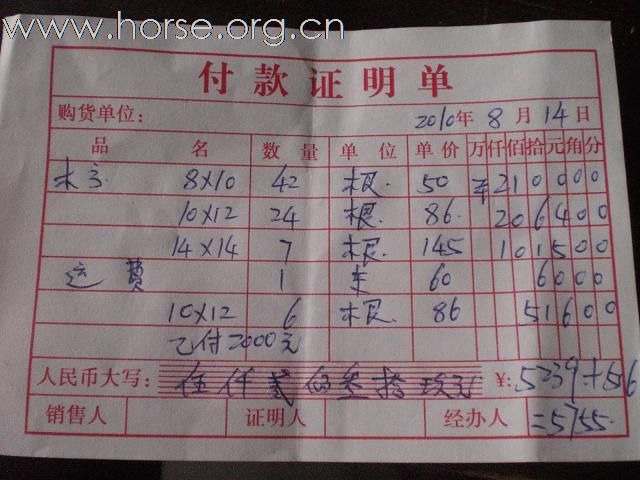 www.horse.org.cn
付款证明单
购货单位: 2010年 8 月 14 日
品 名 数 量 单 位 单 价 万 仟 佰 拾 元 角 分
木方 8×10 42 根. 50 ¥ 2 1 0 0 0 0
10×12 24 根. 86. 2 0 6 4 0 0
14×14 7 根. 145 1 0 1 5 0 0
运费 1 车 60 6 0 0 0
10×12 6 根. 86 5 1 6 0 0
已付2000元
人民币大写: 伍仟贰佰叁拾玖元 ¥: 5239+516
销售人 证明人 经办人 =5755.